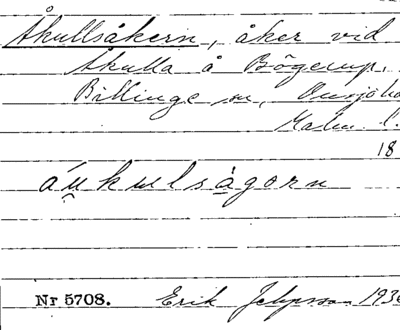 Åkullsåkern, åker vid
Åkulla å Bögerup.
Billinge sn, Onsjö
Malm. l.
18
áu̯kulsågorn
Nr 5708. Erik Jeppsson 193